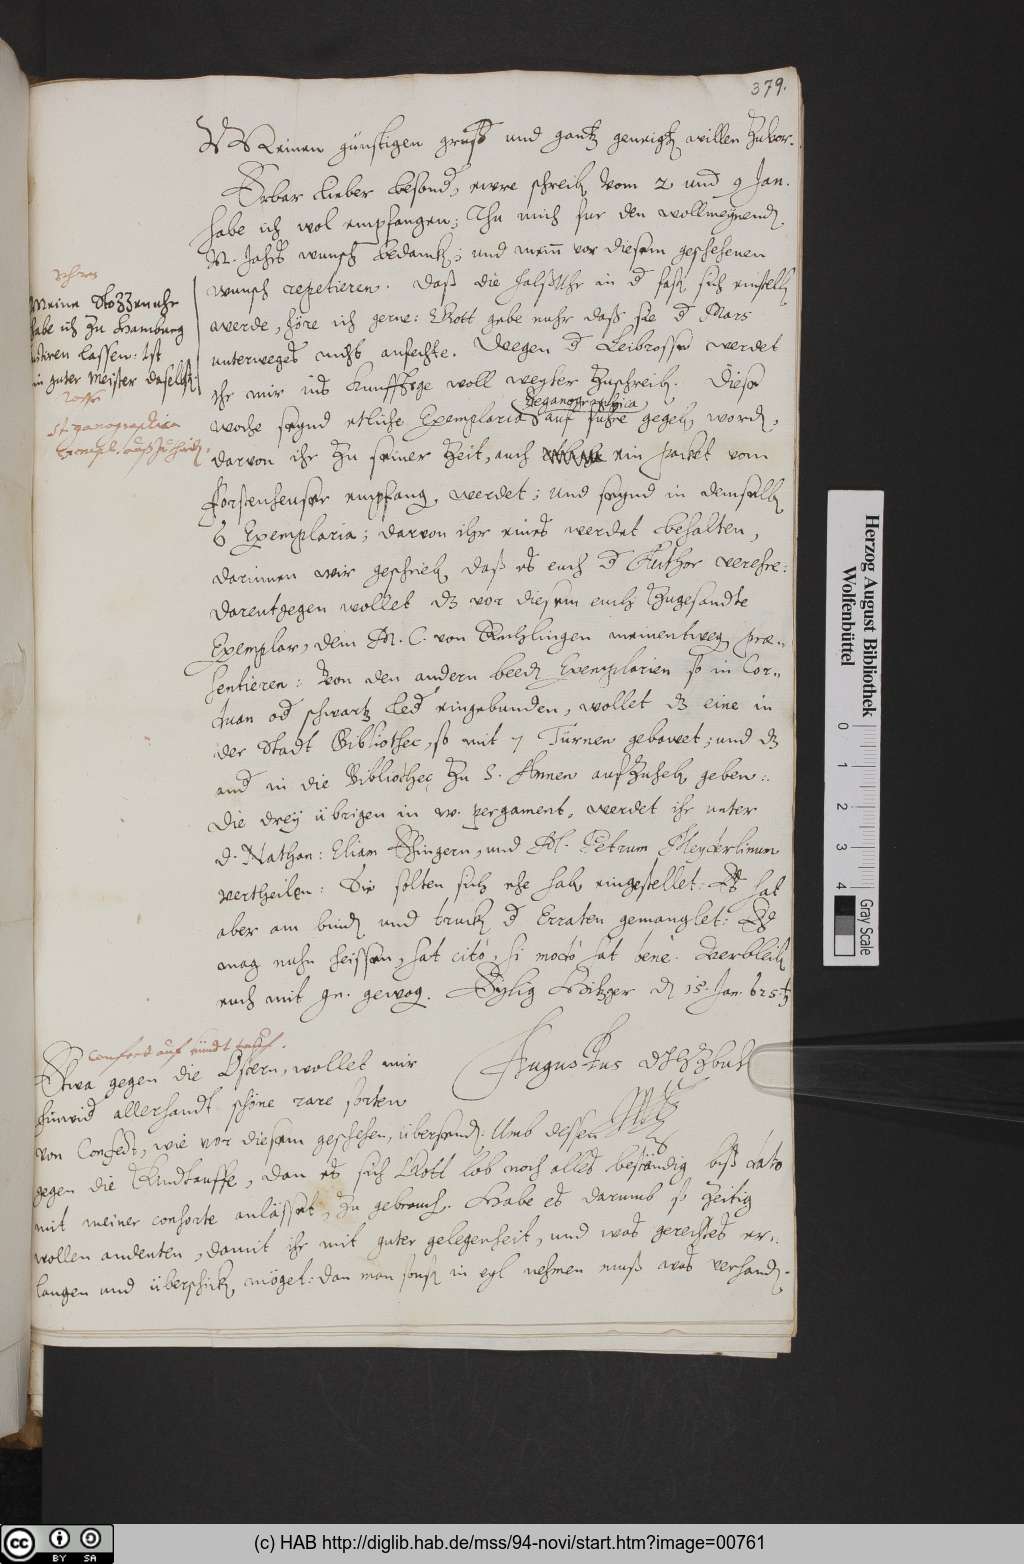 379.
Meinen günstigen gruß und gantz geneigt willen zuvor.
Erbar lieber besond, ewre schreib vom 2 und 9 Jan.
habe ich wol empfangen; Thu mich fur den wollmeynend
N. Jahrs wunsch bedanck; und mein vor diesem geschehenen
wunsch repetieren. Daß die halßUhr in d fast sich einstell
werde, höre ich gerne: Gott gebe nuhr daß sie d Mars
unterwegs nicht anfechte. Wegen d Leibrosse werdet
ihr mir ins kunfftige woll weyter zuschreib. Diese
woche seynd etliche Exemplaria Steganographica auf fuhre gegeb word,
darvon ihr zu seiner zeit, auch ein packet vom
Forstenheuser empfang, werdet; und seynd in demselb
6 Exemplaria; darvon ihr eines werdet behalten,
darinnen wir geschrieb, daß es euch d Author verehre:
darentgegen wollet dz vor diesem euch zugesandte
Exemplar, dem M. C. von meinentweg præ-
sentieren: von den andern beed Exemplarien so in Cor-
duan od schwartz led eingebunden, wollet dz eine in
der Stadt Bibliothec, so mit 7 Türnen gebawet; und dz
and in die Bibliothec zu S. Annen aufzuheb geben:
die drey übrigen in w. pergament, werdet ihr unter
d. Nathan: Eliam Ehingern, und M. Petrum Meyderlinum
vertheilen: Sie solten sich ehe hab eingestellet: Es hat
aber am bind und truck d Erraten gemanglet: Es
mag nuhn heissen, sat citò, si modò sat benè. Verbleib
euch mit gn. gewog. Eylig Hitzger d 15. Jan. 625
Augustus
Uhren
Meine
habe ich zu Hamburg
lassen: Ist
ein guter Meister daselbst
Rosse
Steganographica
Exempl. außzutheil.
Confect auf kindt tauf.
Etwa gegen die Ostern, wollet mir
hinwid allerhandt schöne rare sorten
von Confect, wie vor diesem geschehen, übersend. Umb dessen
gegen die Kindtauffe, dan es sich Gott lob noch alles beständig biß dato
mit meiner consorte anlässet, zu gebrauch. Habe es darumb so zeitig
wollen andenten, damit ihr mit guter gelegenheit, und was gerechtes er-
langen und überschick, möget: dan man sonst in eyl nehmen muß was verhand.
Herzog August Bibliothek
Wolfenbüttel
0 1 2 3 4
Gray Scale
CC BY SA
(c) HAB http://diglib.hab.de/mss/94-novi/start.htm?image=00761